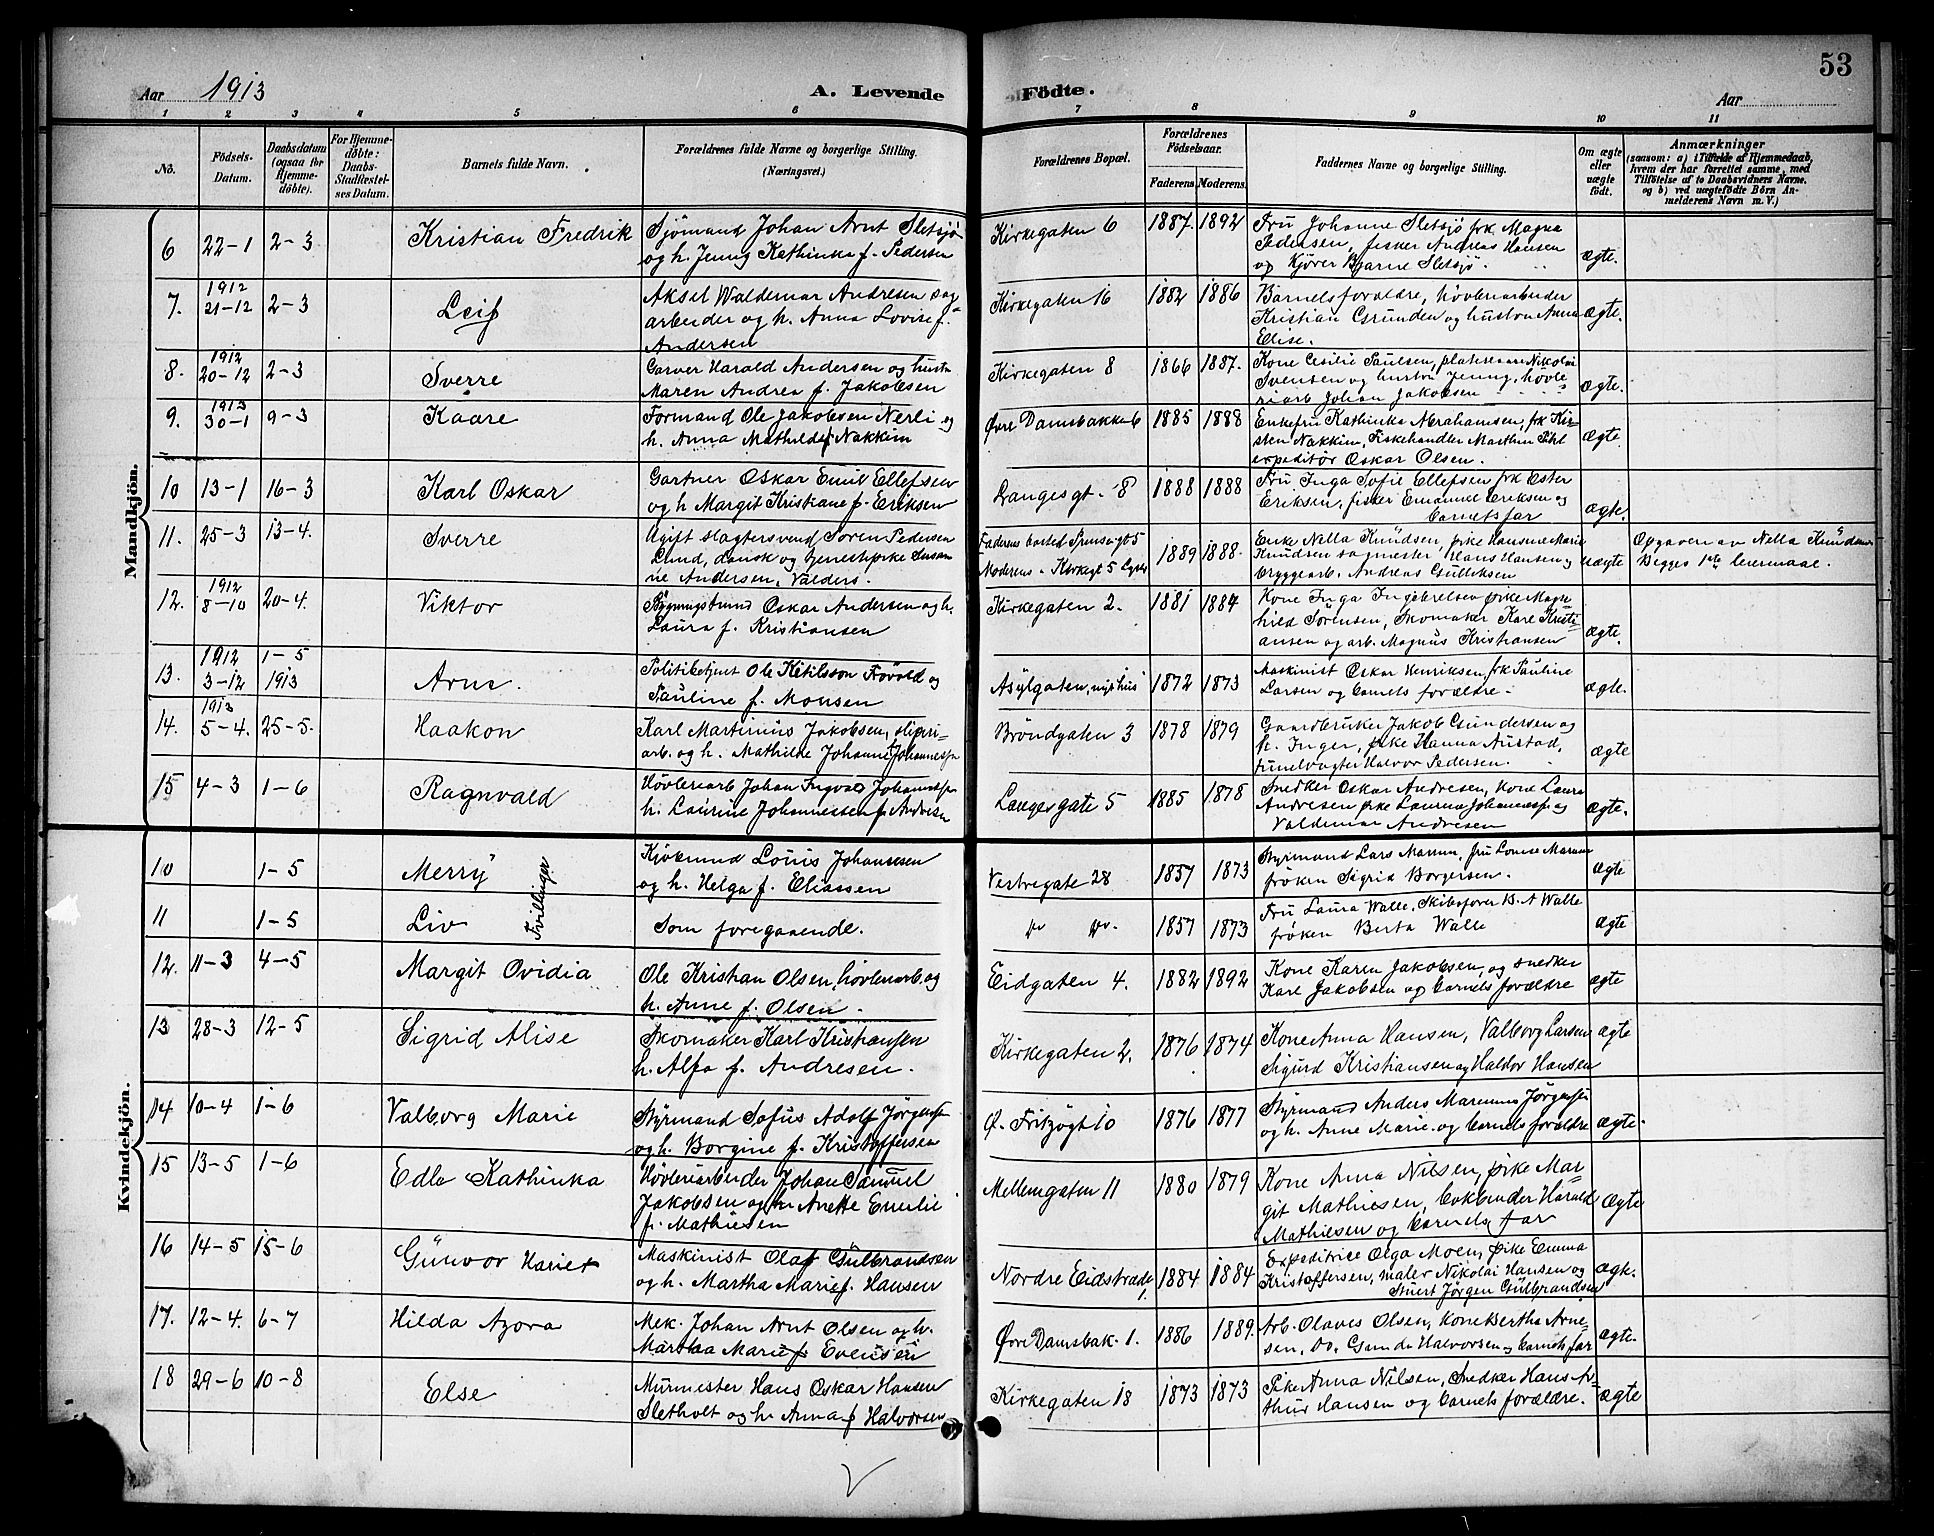 53
Aar 1913
A. Levende Födte.
Aar
1 2 3 4 5 6 7 8 9 10 11
No.
Fødsels-Datum.
Daabsdatum (ogsaa for Hjemme-døbte).
For Hjemme-døbte: Daabs-Stadfæstel-ses Datum.
Barnets fulde Navn.
Forældrenes fulde Navne og borgerlige Stilling. (Næringsvei.)
Forældrenes Bopæl.
Forældrenes Fødselsaar.
Faderens. Moderens.
Faddernes Navne og borgerlige Stilling.
Om ægte eller uægte født.
Anmærkninger
(saasom: a) i Tilfælde af Hjemmedaab, hvem der har forrettet samme, med Tilføielse af to Daabsvidners Navne. og b) ved uægtefødte Börn An-melderens Navn m. V.)
Mandkjön.
6 22-1 2-3 Kristian Fredrik
Sjömand Johan Arnt Sletsjö
og h. Jenny Kathinka f. Pedersen
Kirkegaten 6 1887. 1892
Fru Johanne Sletsjö frk. Magna
Pedersen, fisker Andreas Hansen
og Kjörer Bjarne Sletsjö.
ægte.
7. 1912 21-12 2-3 Leif
Aksel Waldemar Andresen sag
arbeider og h. Anna Lovise f.
Andersen
Kirkegaten 16 1882 1886
Barnets forældre, hövleriarbeider
Kristian Grunden og hustru Anna
Elise.
ægte.
8. 1912 20-12 2-3 Sverre
Garver Harald Andersen og hustru
Maren Andrea f. Jakobsen
Kirkegaten 8 1866 1887.
Kone Cesilie Paulsen, Nikolai
Svensen og hustru Jenny, hövle
riarb Johan Jakobsen
ægte.
9. 1913 30-1 9-3 Kaare
Formand Ole Jakobsen Nerli og
h. Anna Mathilde f Nakkim
Övre Damsbakken 6 1885 1888
Enkefru Kathinka Abrahamsen, frk Kir-
sten Nakkim, Fiskehandler Marthin Pihl
expeditör Oskar Olsen.
ægte.
10 13-1 16-3 Karl Oskar
Gartner Oskar Emil Ellefsen
og h Margit Kristiane f. Eriksen
Langesgt. 8 1888 1888
Fru Inga Sofie Ellefsen frk Ester
Eriksen, fisker Emanuel Eriksen og
barnets far
ægte.
11. 25-3 13-4. Sverre
Ugift slagtersvend Sören Pedersen
Lund, dansk og tjenestepike Susan
ne Andersen, Valders.
Faderens bosted
Moderens - Kirkegt 5 1889 1888.
Enke Nella Knudsen, pike Hansine Marie
Knudsen sagmester Hans Hansen og
bryggearb. Andreas Gulliksen
uægte
Opgaven av Nella Knudsen
Begges 1ste leiermaal.
12. 1912 8-10 20-4. Viktor
Oskar Andersen og h.
Laura f. Kristiansen
Kirkegaten 2. 1881 1884
Kone Inga Ingebretsen pike Magn
hild Sörensen, Skomaker Karl Kristi-
ansen og arb. Magnus Kristiansen
ægte.
13. 1912 3-12 1-5 1913 Arne.
Politibetjent Ole Ketilsson Frövold og
Pauline f. Monsen
Asylgaten, nyt hus 1872 1873
Maskinist Oskar Henriksen, frk Pauline
Larsen og barnets forældre.
ægte.
14. 1913 5-4. 25-5. Haakon
Karl Martinius Jakobsen, sliperi-
arb. og h. Mathilde Johanne f Johannessen
Bröndgaten 3 1878 1879
Gaardbruker Jakob Gundersen og
h. Inger, pike Hanna Austad,
tunelvagter Halvor Pedersen.
ægte
15 4-3 1-6 Ragnvald
Hövleriarb Johan Ingvar Johannessen
h. Laurine Johannessen f. Andresen
Langesgate 5 1885 1878
Snedker Oskar Andresen, Kone Laura
Andresen pike Laurina Johannessen og
Valdemar Andresen
ægte.
Kvindekjön.
10 1-5 Merry
Tvillinger
Louis Johannesen
og h. Helga f. Eliassen
Vestregate 28 1857 1873
Styrmand Lars Marum, fru Lovise Marum
fröken Sigrid Borgersen.
ægte
11 1-5 Liv
Som foregaaende.
" " 1857 1873
Fru Laura Walle, Skibsförer B. A Walle
fröken Berta Walle
ægte
12. 11-3 4-5 Margit Ovidia
Ole Kristian Olsen, hövleriarb. og
h. Anne f. Olsen.
Eidgaten 4. 1882 1892
Kone Karen Jakobsen, og snedker
Karl Jakobsen og barnets forældre
ægte
13 28-3 12-5 Sigrid Alise
Skomaker Karl Kristiansen
h. Alfa f. Andresen.
Kirkegaten 2. 1876 1874
Kone Anna Hansen, Valborg Larsen
Sigurd Kristiansen og Haldor Hansen
ægte
14 10-4 1-6 Valborg Marie
Styrmand Sofus Adolf Jörgensen
og h. Borgine f. Kristoffersen
Ö. Fritzögt 10 1876 1877
Styrmand Anders Marenius Jörgensen
og h. Anne Marie og barnets forældre
ægte.
15 13-5 1-6 Edle Kathinka
Hövleriarbeider Johan Samuel
Jakobsen og hr Anette Emilie
f. Mathiesen
Mellemgaten 11 1880 1879
Kone Anna Nilsen, pike Mar-
git Mathiesen, bokbinder Harald
Mathiesen og barnets far
ægte
16 14-5 15-6 Gunvor Hariet
Maskinist Olaf Gulbrandsen
og h. Martha Marie f. Hansen
Nordre Eidstræde 1, 1884 1884
Expeditrice Olga Moen, pike Emma
Kristoffersen, maler Nikolai Hansen og
Stuert Jörgen Gulbrandsen
ægte.
17. 12-4. 6-7 Hilda Azora
Mek. Johan Arnt Olsen og h.
Martha Marie f. Evensen
Övre Damsbak. 1. 1886 1889.
Arb. Olaves Olsen, Kone Bertha Arne-
sen, Do. Gunda Halvorsen og barnets far
ægte.
18 29-6 10-8 Else
Murmester Hans Oskar Hansen
Sletholt og hr Anna f Halvorsen
Kirkegaten 18 1873 1873
Pike Anna Nilsen, Snedker Hans Ar-
thur Hansen og barnets forældre.
ægte